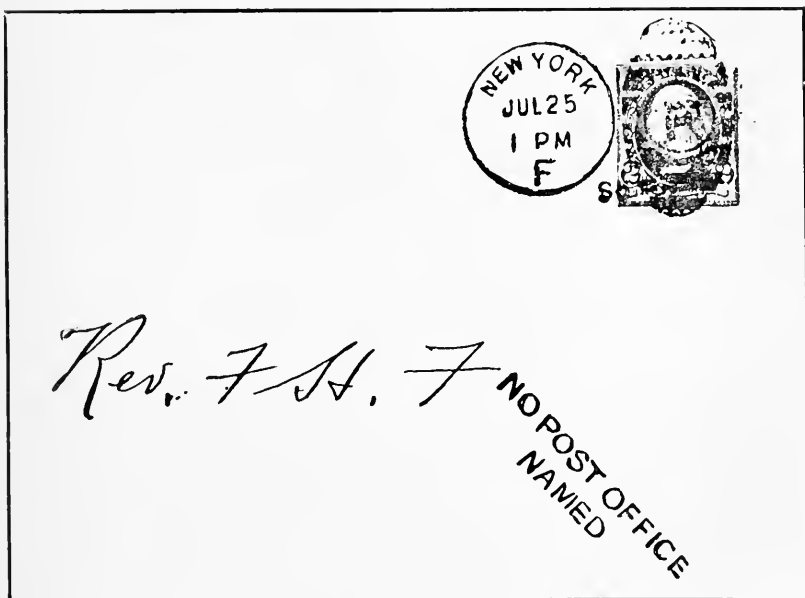 NEW YORK
JUL 25
1 PM
F
S
Rev. F St. F
NO POST OFFICE
NAMED